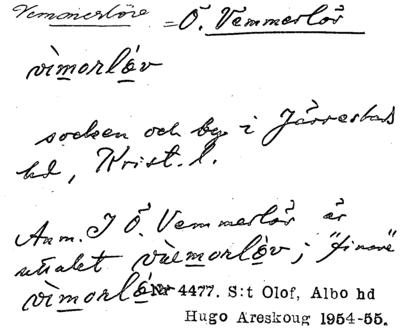 Vemmerlöv = Ö. Vemmerlöv
vìmorlöv
socken och by i Järrestads
hd, Krist. l.
Anm. I Ö. Vemmerlöv är
uttalet vùemorlöv; "finare"
vìmorlöv
Nr 4477. S:t Olof, Albo hd
Hugo Areskoug 1954-55.